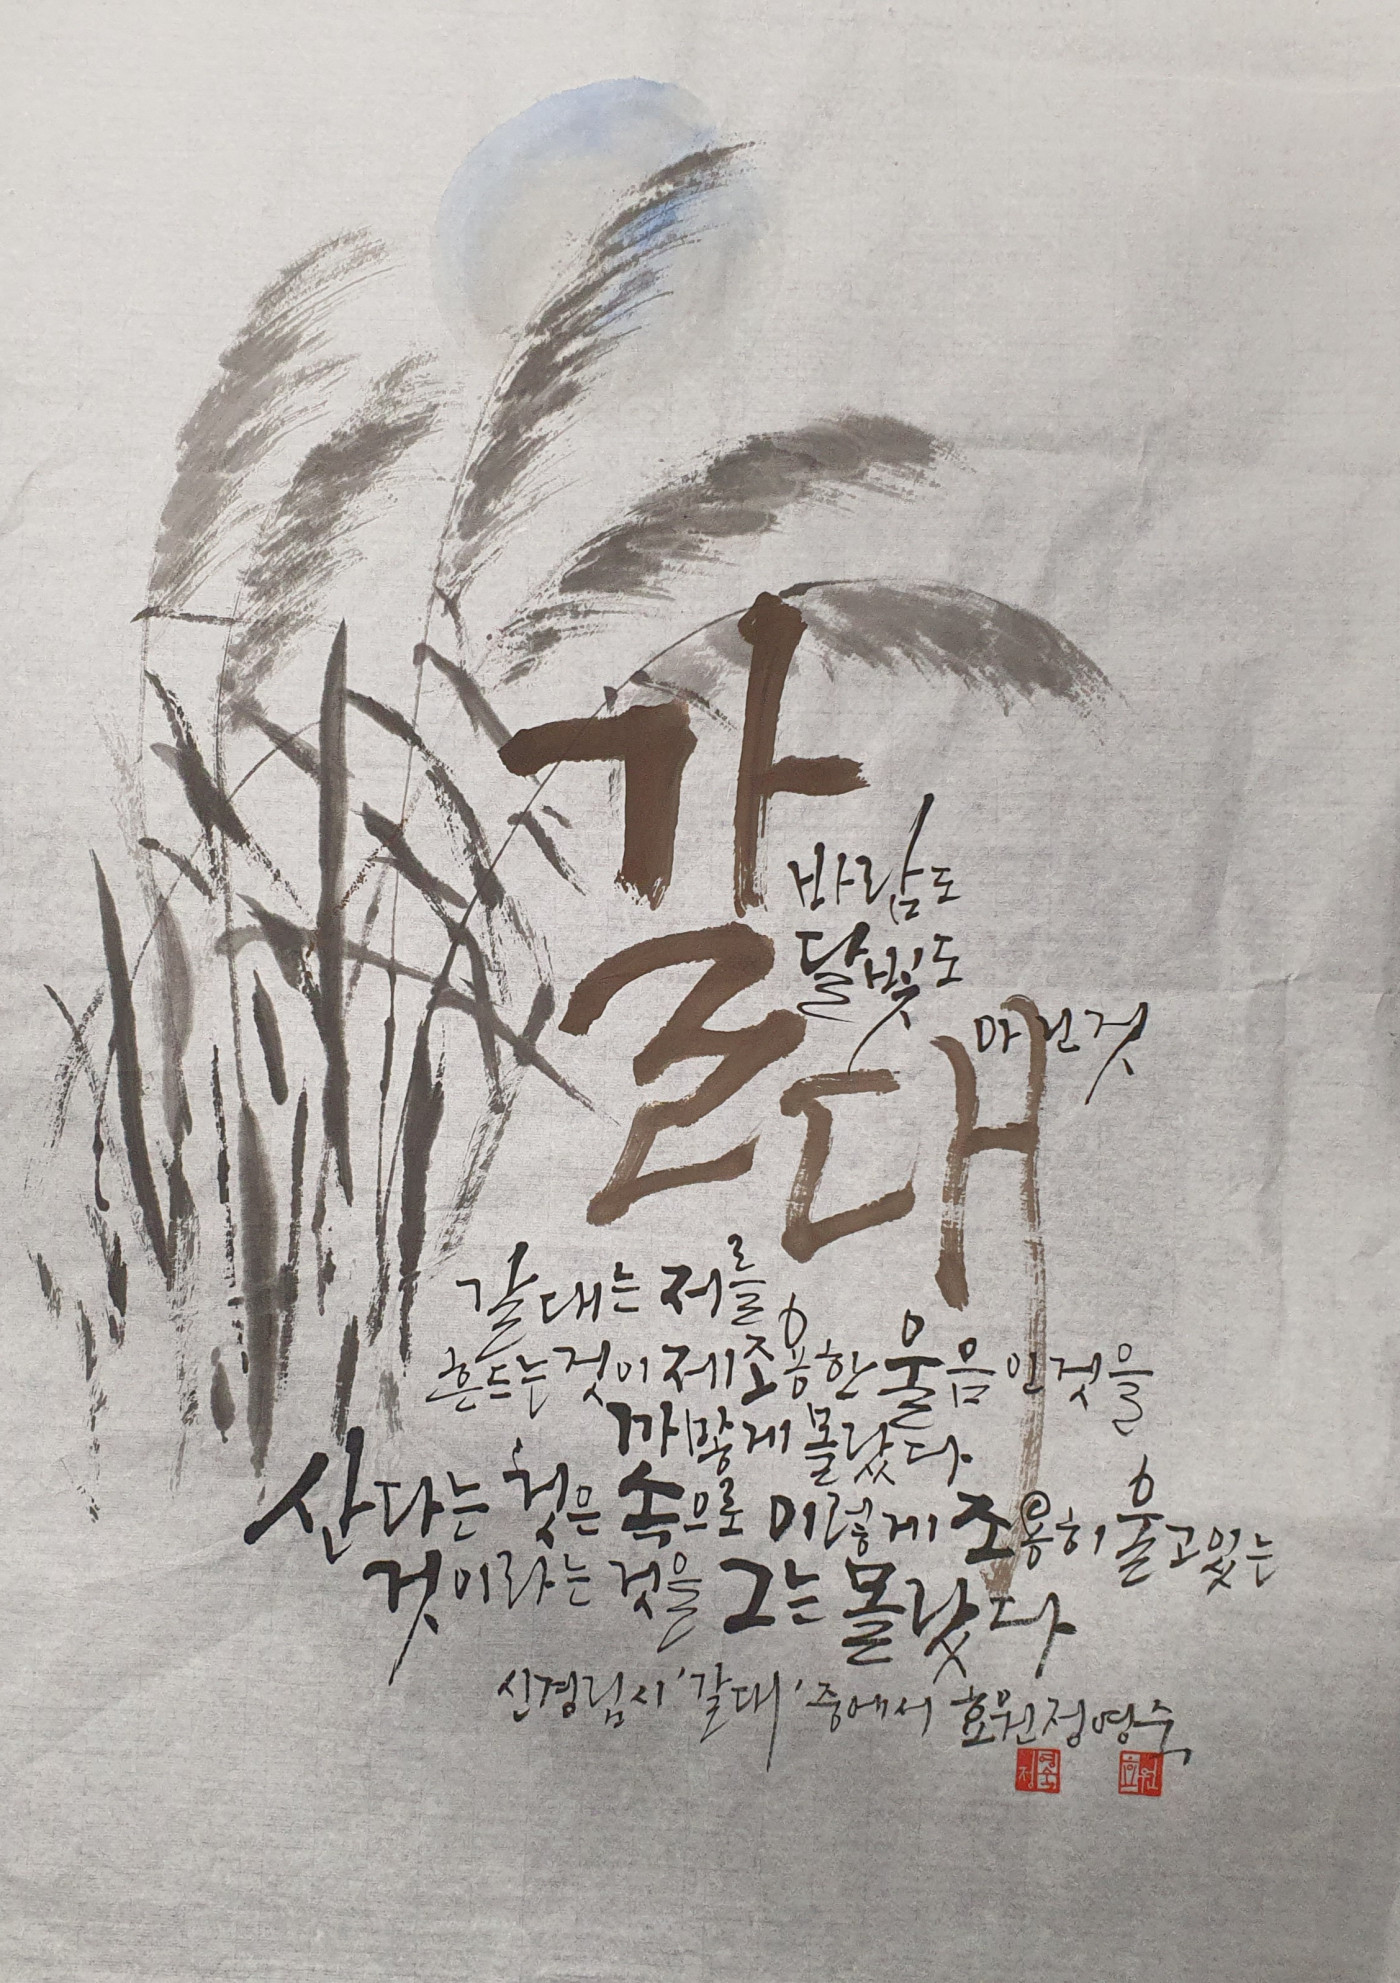 갈대
바람도
달빛도
아닌것
갈대는 저를
흔드는것이 제조용한 울음인것을
까맣게 몰랐다
산다는 것은 속으로 이렇게 조용히 울고있는
것이라는 것을 그는 몰랐다
신경림시 '갈대' 중에서 효원정영숙
정영숙 효원